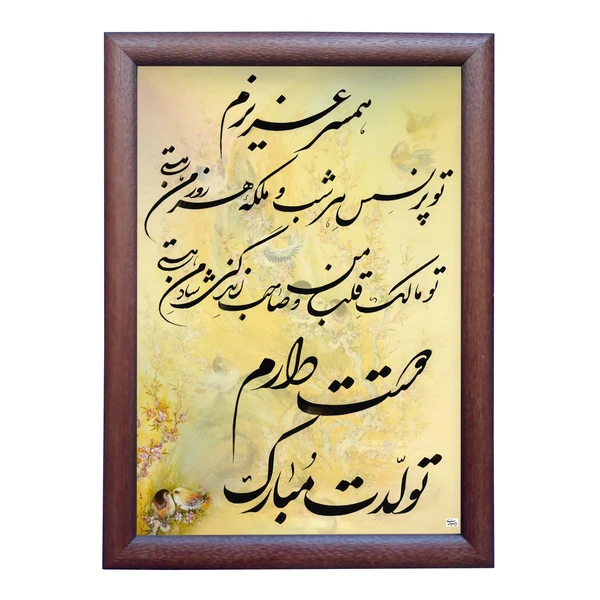 همسر عزیزم
تو پرنسس هر شب و ملکهٔ هر روز من هستی
تو مالک قلب من و صاحب زندگی شاد من هستی
دوستت دارم
تولّدت مُبارک